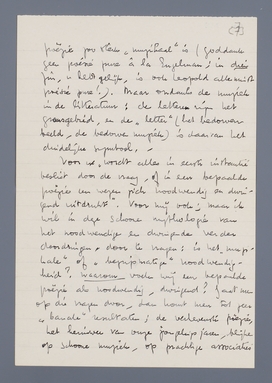 (7)
poëzie par [excellence] „muzikaal" is (goddank
geen poésie pure à la Engelman; in dezen
zin, u hebt gelijk, is ook Leopold allerminst
poésie pure!). Maar ondanks de muziek
in de litteratuur; de letteren zijn het
grensgebied, en de „letter" (het bedorven
beeld, de bedorven muziek) is daarvan het
duidelijke symbool. –
Voor u wordt alles in eerste instantie
beslist door de vraag, of in een bepaalde
poëzie een wezen zich noodwendig en dwin-
gend uitdrukt. Voor mij ook; maar ik
wil in deze schoone mythologie van
het noodwendige en dwingende verder
doordringen, door te vragen: is het „muzi-
kale" of „begripmatige" noodwendig-
heid? Waarom voelen wij een bepaalde
poëzie als noodwendig, dwingend? Gaat men
op die vragen door, dan komt men tot zeer
„banale" resultaten; de verleerende poëzie,
het herinneren van onze jongelingsjaren, blijkt
op schoone muziek, op prachtige associaties